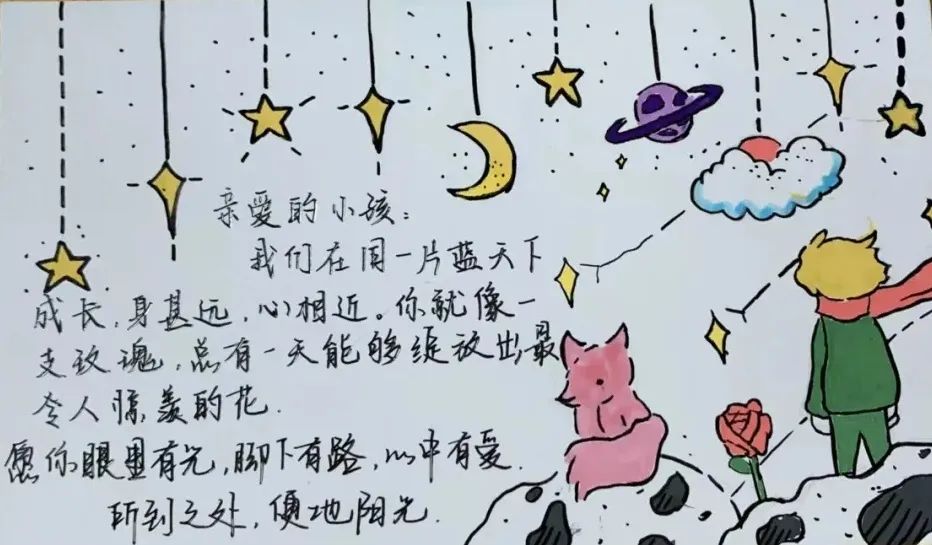 亲爱的小孩：
我们在同一片蓝天下
成长，身甚远，心相近。你就像一
支玫瑰，总有一天能够绽放出最
令人惊羡的花．
愿你眼里有光，脚下有路，心中有爱．
所到之处，便地阳光．